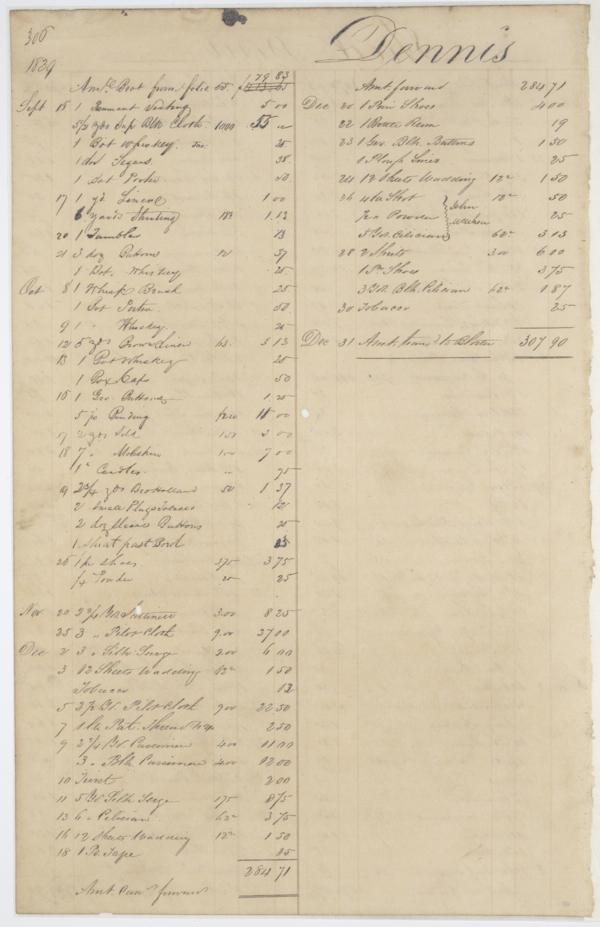 306
1839
Dennis
Amt. Brot from folio 65. 179 83
Sept 15 1 Garment 5 00
5 1/2 yds Sup Blk Cloth 1000 55
1 Bot Whiskey 25
1 doz Segars 38
1 Bot Porter 50
17 1 yd 1 00
6 yards Shirting 1.13
20 1 Tumbler 13
21 3 doz Buttons 12 37
1 Bot. Whiskey 25
Oct 8 1 Whisk Brush 25
1 Bot Porter 50
9 1 " Whiskey 25
12 5 yds Brown Linen 5 13
13 1 Bot Whiskey 25
1 Box Caps 50
15 1 Gro. Buttons 1.25
5 ps Binding 11 00
17 2 yds Silk 150 3 00
18 7 " Moleskin 100 7 00
1 " Candles 75
19 2 3/4 yds Bro Holland 50 1 37
2 small Plugs Tobacco 12
2 doz Buttons 25
1 sheet past Bord 25
25 1 pr shoes 375 3 75
1/4 Powder 25
Nov 20 2 3/4 Yds 300 8 25
25 3 " Pilot Cloth 900 27 00
Dec 2 3 " Silk Serge 200 6 00
3 12 Sheets Wadding 12 1 50
Tobacco 12
5 2 1/2 Yd. Pilot Cloth 900 22 50
7 1 lb Pat. Thread 2 50
9 2 3/4 Yd Cassimere 400 11 00
3 " Blk Cassimere 400 12 00
10 Twist 2 00
11 5 Yd Silk Serge 175 8 75
13 6 " Pelician 62 3 75
16 12 sheets Wadding 12 1 50
18 1 Ps Tape
284 71
Amt Carr'd forward
Amt forward 284 71
Dec 20 1 Pair Shoes 4 00
22 1 19
23 1 Gro. Blk. Buttons 1 50
1 Plough Lines 25
24 12 Sheets Wadding 12 1 50
26 4 lb Shot 12 50
Powder 25
5 Yds. Pelician 62 3 13
John
28 2 Shirts 300 6 00
1 Pr Shoes 3 75
3 Yds. Blk Pelician 62 1 87
30 Tobacco 25
Dec 31 Amt. trans'd to 307 90